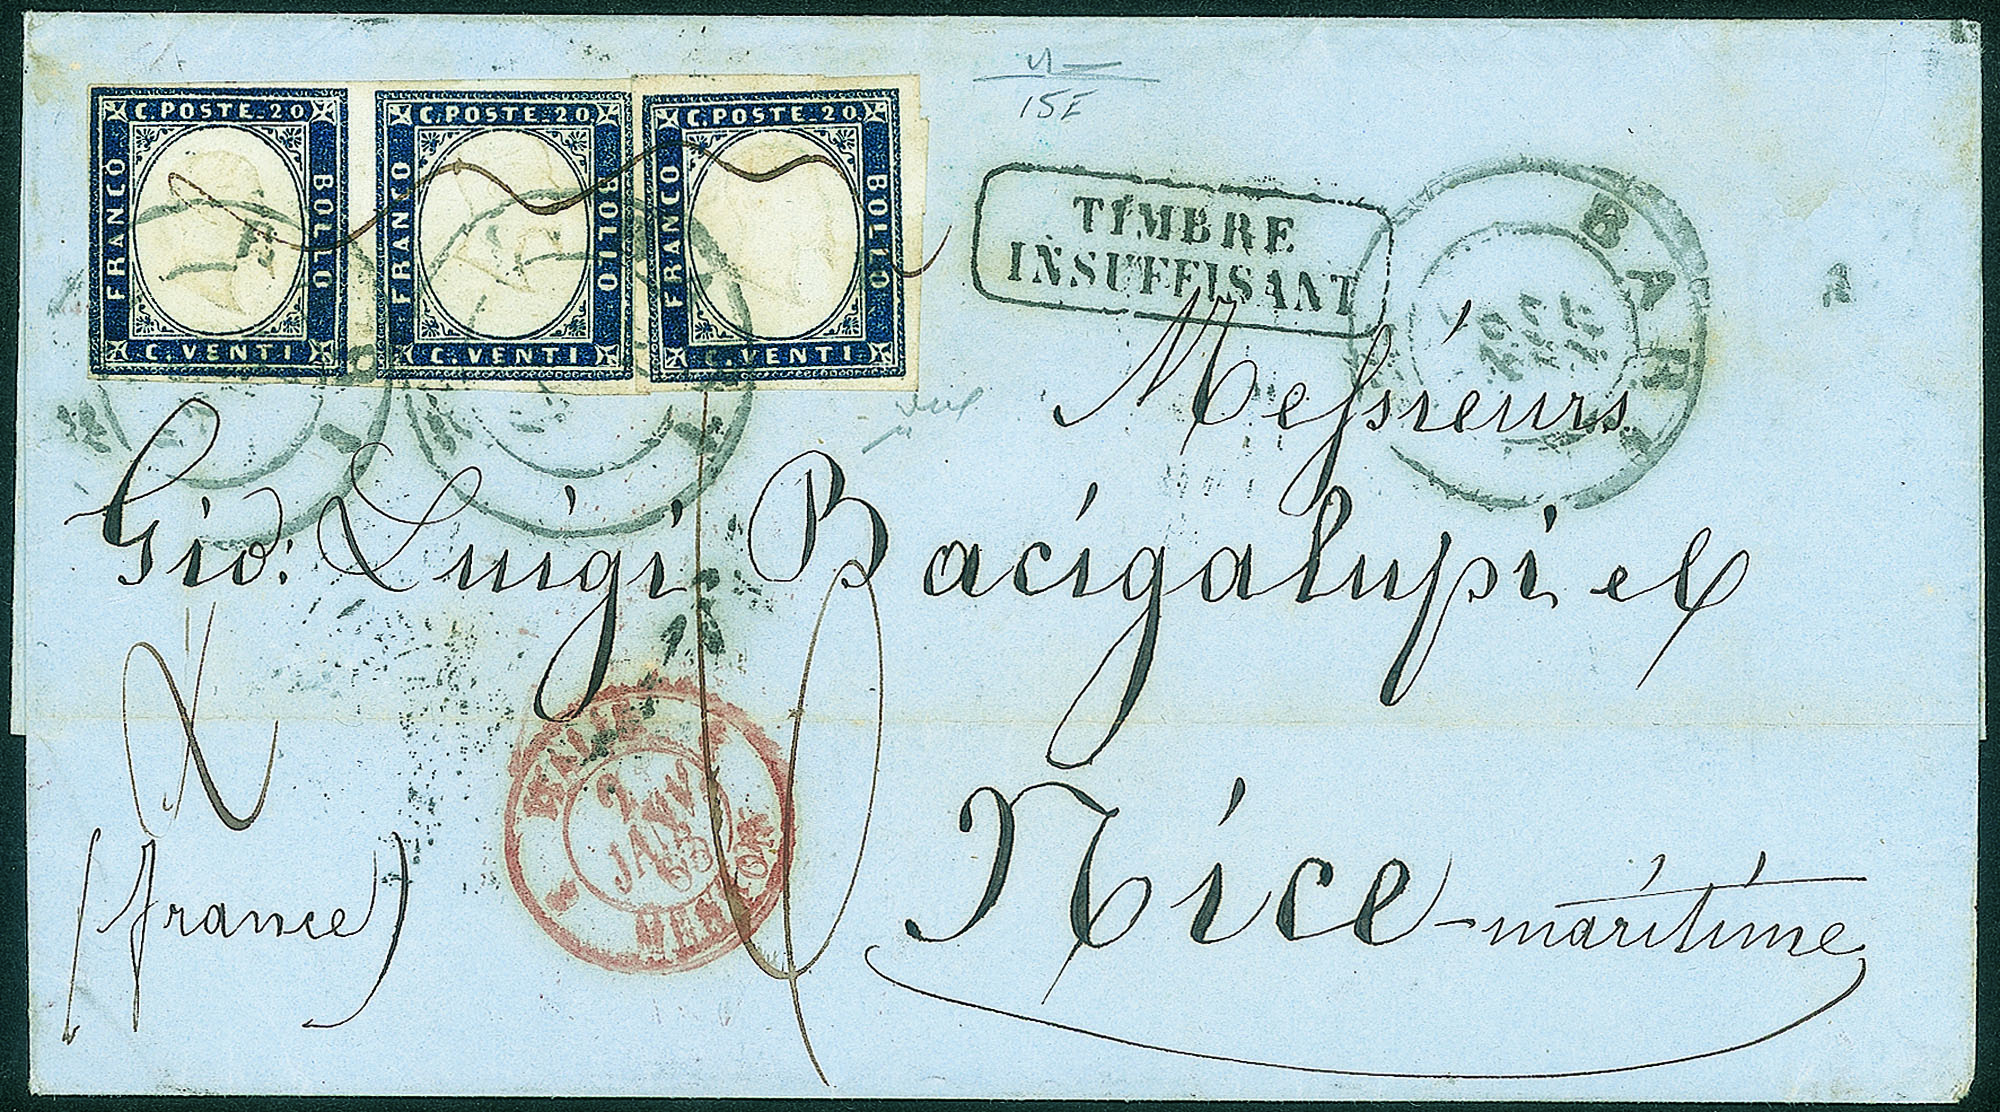 C. POSTE. 20
FRANCO
BOLLO
C. VENTI
C. POSTE. 20
FRANCO
BOLLO
C. VENTI
C. POSTE. 20
FRANCO
BOLLO
C. VENTI
15E
TIMBRE
INSUFFISANT
BARI
Messieurs
Gio: Luigi Bacigalupi et
Nice-maritime
(france)
2
JANV
63
MENTON